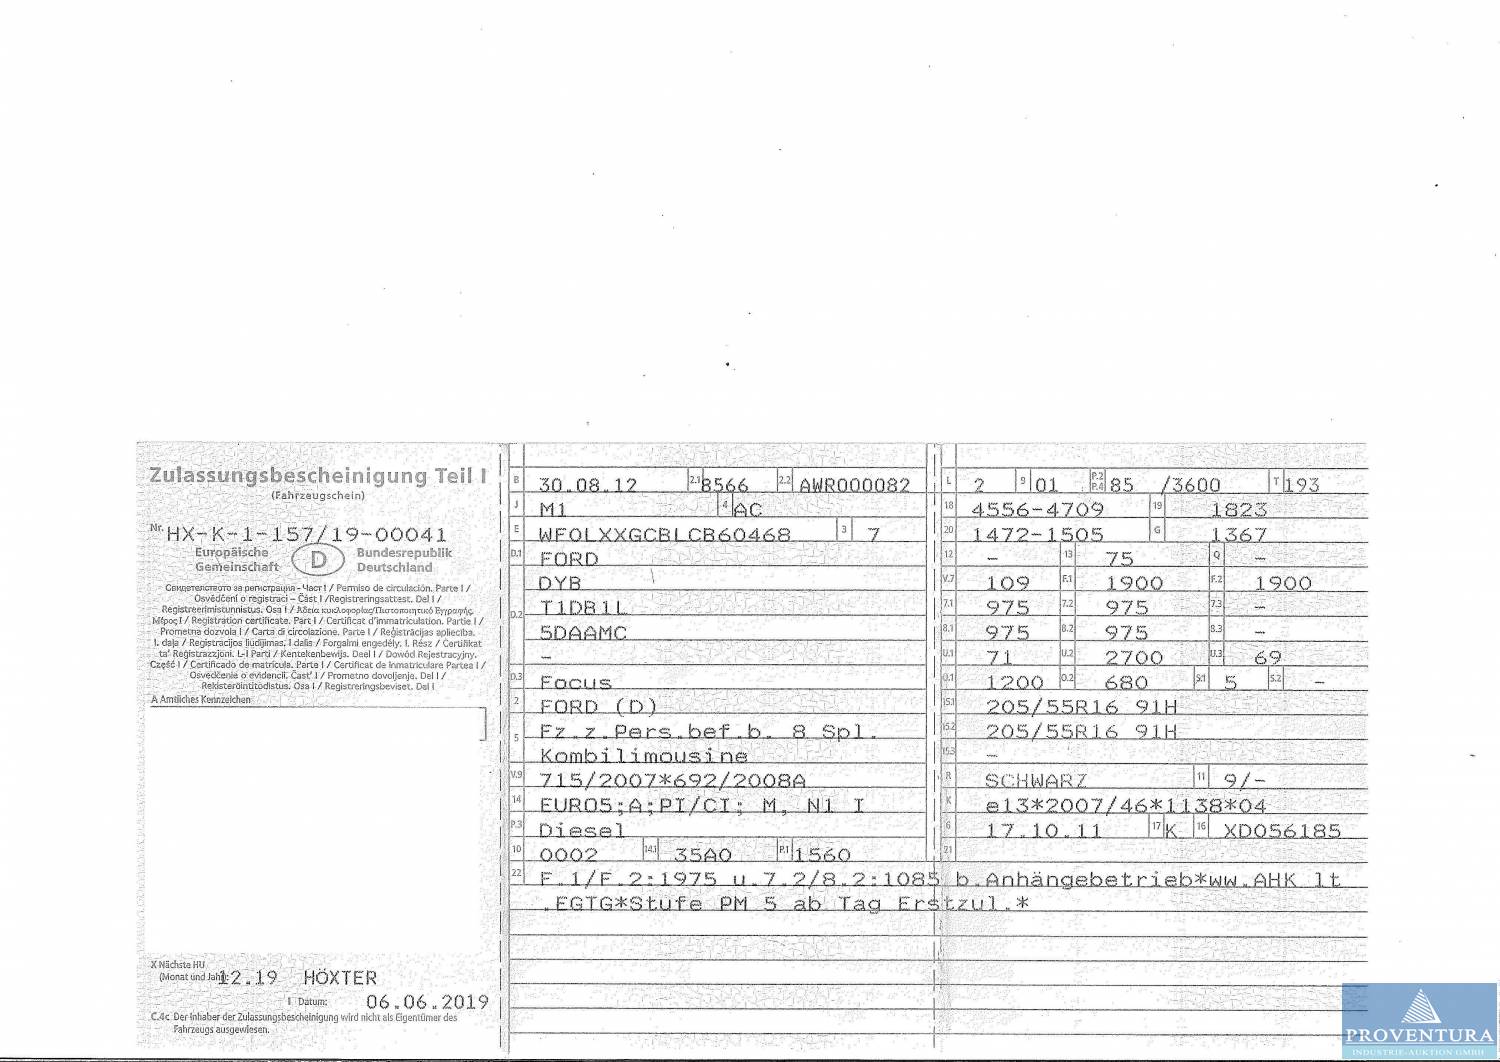 Zulassungsbescheinigung Teil I
(Fahrzeugschein)
Nr. HX-K-1-157/19-00041
Europäische Gemeinschaft D Bundesrepublik Deutschland
Свидетелството за регистрация - Част I / Permiso de circulación. Parte I /
Osvědčení o registraci – Část I /Registreringsattest. Del I /
Registreerimistunnistus. Osa I / Άδεια κυκλοφορίας/Πιστοποιητικό Εγγραφής.
Μέρος I / Registration certificate. Part I / Certificat d'immatriculation. Partie I /
Prometna dozvola I / Carta di circolazione. Parte I / Reģistrācijas apliecība.
I. daļa / Registracijos liudijimas. I dalis / Forgalmi engedély. I. Rész / Ċertifikat
ta' Reġistrazzjoni. L-I Parti / Kentekenbewijs. Deel I / Dowód Rejestracyjny.
Część I / Certificado de matrícula. Parte I / Certificat de înmatriculare Partea I /
Osvedčenie o evidencii. Časť I / Prometno dovoljenje. Del I /
Rekisteröintitodistus. Osa I / Registreringsbeviset. Del I
A Amtliches Kennzeichen
X Nächste HU
(Monat und Jahr): 12.19 HÖXTER
I Datum: 06.06.2019
C.4c Der Inhaber der Zulassungsbescheinigung wird nicht als Eigentümer des
Fahrzeugs ausgewiesen.
B 30.08.12 2.1 8566 2.2 AWR000082
J M1 4 AC
E WF0LXXGCBLCB60468 3 7
D.1 FORD
DYB
D.2 T1DB1L
5DAAMC
–
D.3 Focus
2 FORD (D)
5 Fz.z.Pers.bef.b. 8 Spl.
Kombilimousine
V.9 715/2007*692/2008A
14 EURO5;A;PI/CI; M, N1 I
P.3 Diesel
10 0002 14.1 35A0 P.1 1560
22 F.1/F.2:1975 u.7.2/8.2:1085 b.Anhängebetrieb*ww.AHK lt
.EGTG*Stufe PM 5 ab Tag Erstzul.*
L 2 9 01 P.2 P.4 85 /3600 T 193
18 4556-4709 19 1823
20 1472-1505 G 1367
12 – 13 75 Q –
V.7 109 F.1 1900 F.2 1900
7.1 975 7.2 975 7.3 –
8.1 975 8.2 975 8.3 –
U.1 71 U.2 2700 U.3 69
O.1 1200 O.2 680 S.1 5 S.2 –
15.1 205/55R16 91H
15.2 205/55R16 91H
15.3 –
R SCHWARZ 11 9/-
K e13*2007/46*1138*04
6 17.10.11 17 K 16 XD056185
21
PROVENTURA
INDUSTRIE-AUKTION GMBH